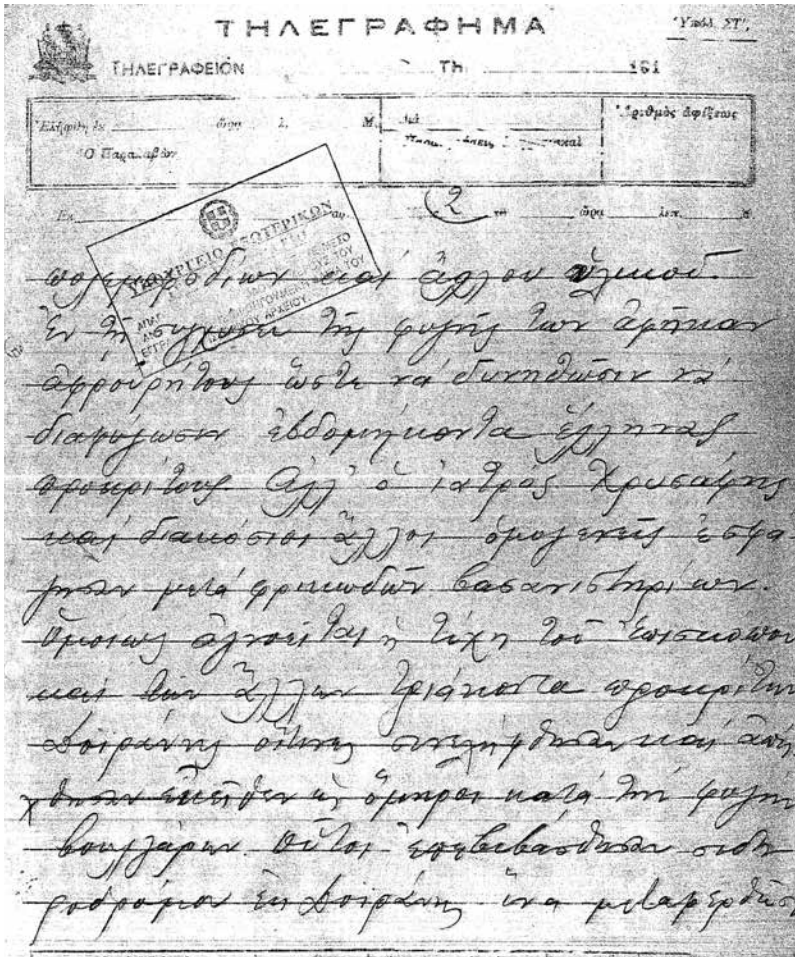 ΤΗΛΕΓΡΑΦΗΜΑ
Ὑπόδ. ΣΤ'.
ΤΗΛΕΓΡΑΦΕΙΟΝ Τῇ 191
Ἐλήφθη ἐκ ὥρα λ. Μ. Διὰ Ἀριθμὸς ἀφίξεως
Ὁ Παραλαβὼν
Ἐκ 2 τῇ ὥρα λεπ.
ΥΠΟΥΡΓΕΙΟ ΕΞΩΤΕΡΙΚΩΝ
πολεμοφοδίων καὶ ἄλλου ὑλικοῦ.
Ἐν τῇ συγχύσει τῆς φυγῆς των ἀφῆκαν
ἀφρουρήτους ὥστε νὰ δυνηθῶσιν νὰ
διαφύγωσιν ἑβδομήκοντα ἕλληνας
προκρίτους. Ἀλλ' ὁ ἰατρὸς Χρυσάφης
καὶ διακόσιοι ἄλλοι ὁμογενεῖς ἐσφά
γησαν μετὰ φρικωδῶν βασανιστηρίων.
Ὁμοίως ἀγνοεῖται ἡ τύχη τοῦ Ἐπισκόπου
καὶ τῶν ἄλλων τριάκοντα προκρίτων
Δοϊράνης οἵτινες συνελήφθησαν καὶ ἀπή
χθησαν ἐκεῖθεν ὡς ὅμηροι κατὰ τὴν φυγὴν
βουλγάρων. Οὗτοι ἐπεβιβάσθησαν σιδη
ροδρόμου ἐκ Δοϊράνης ἵνα μεταφερθῶσι